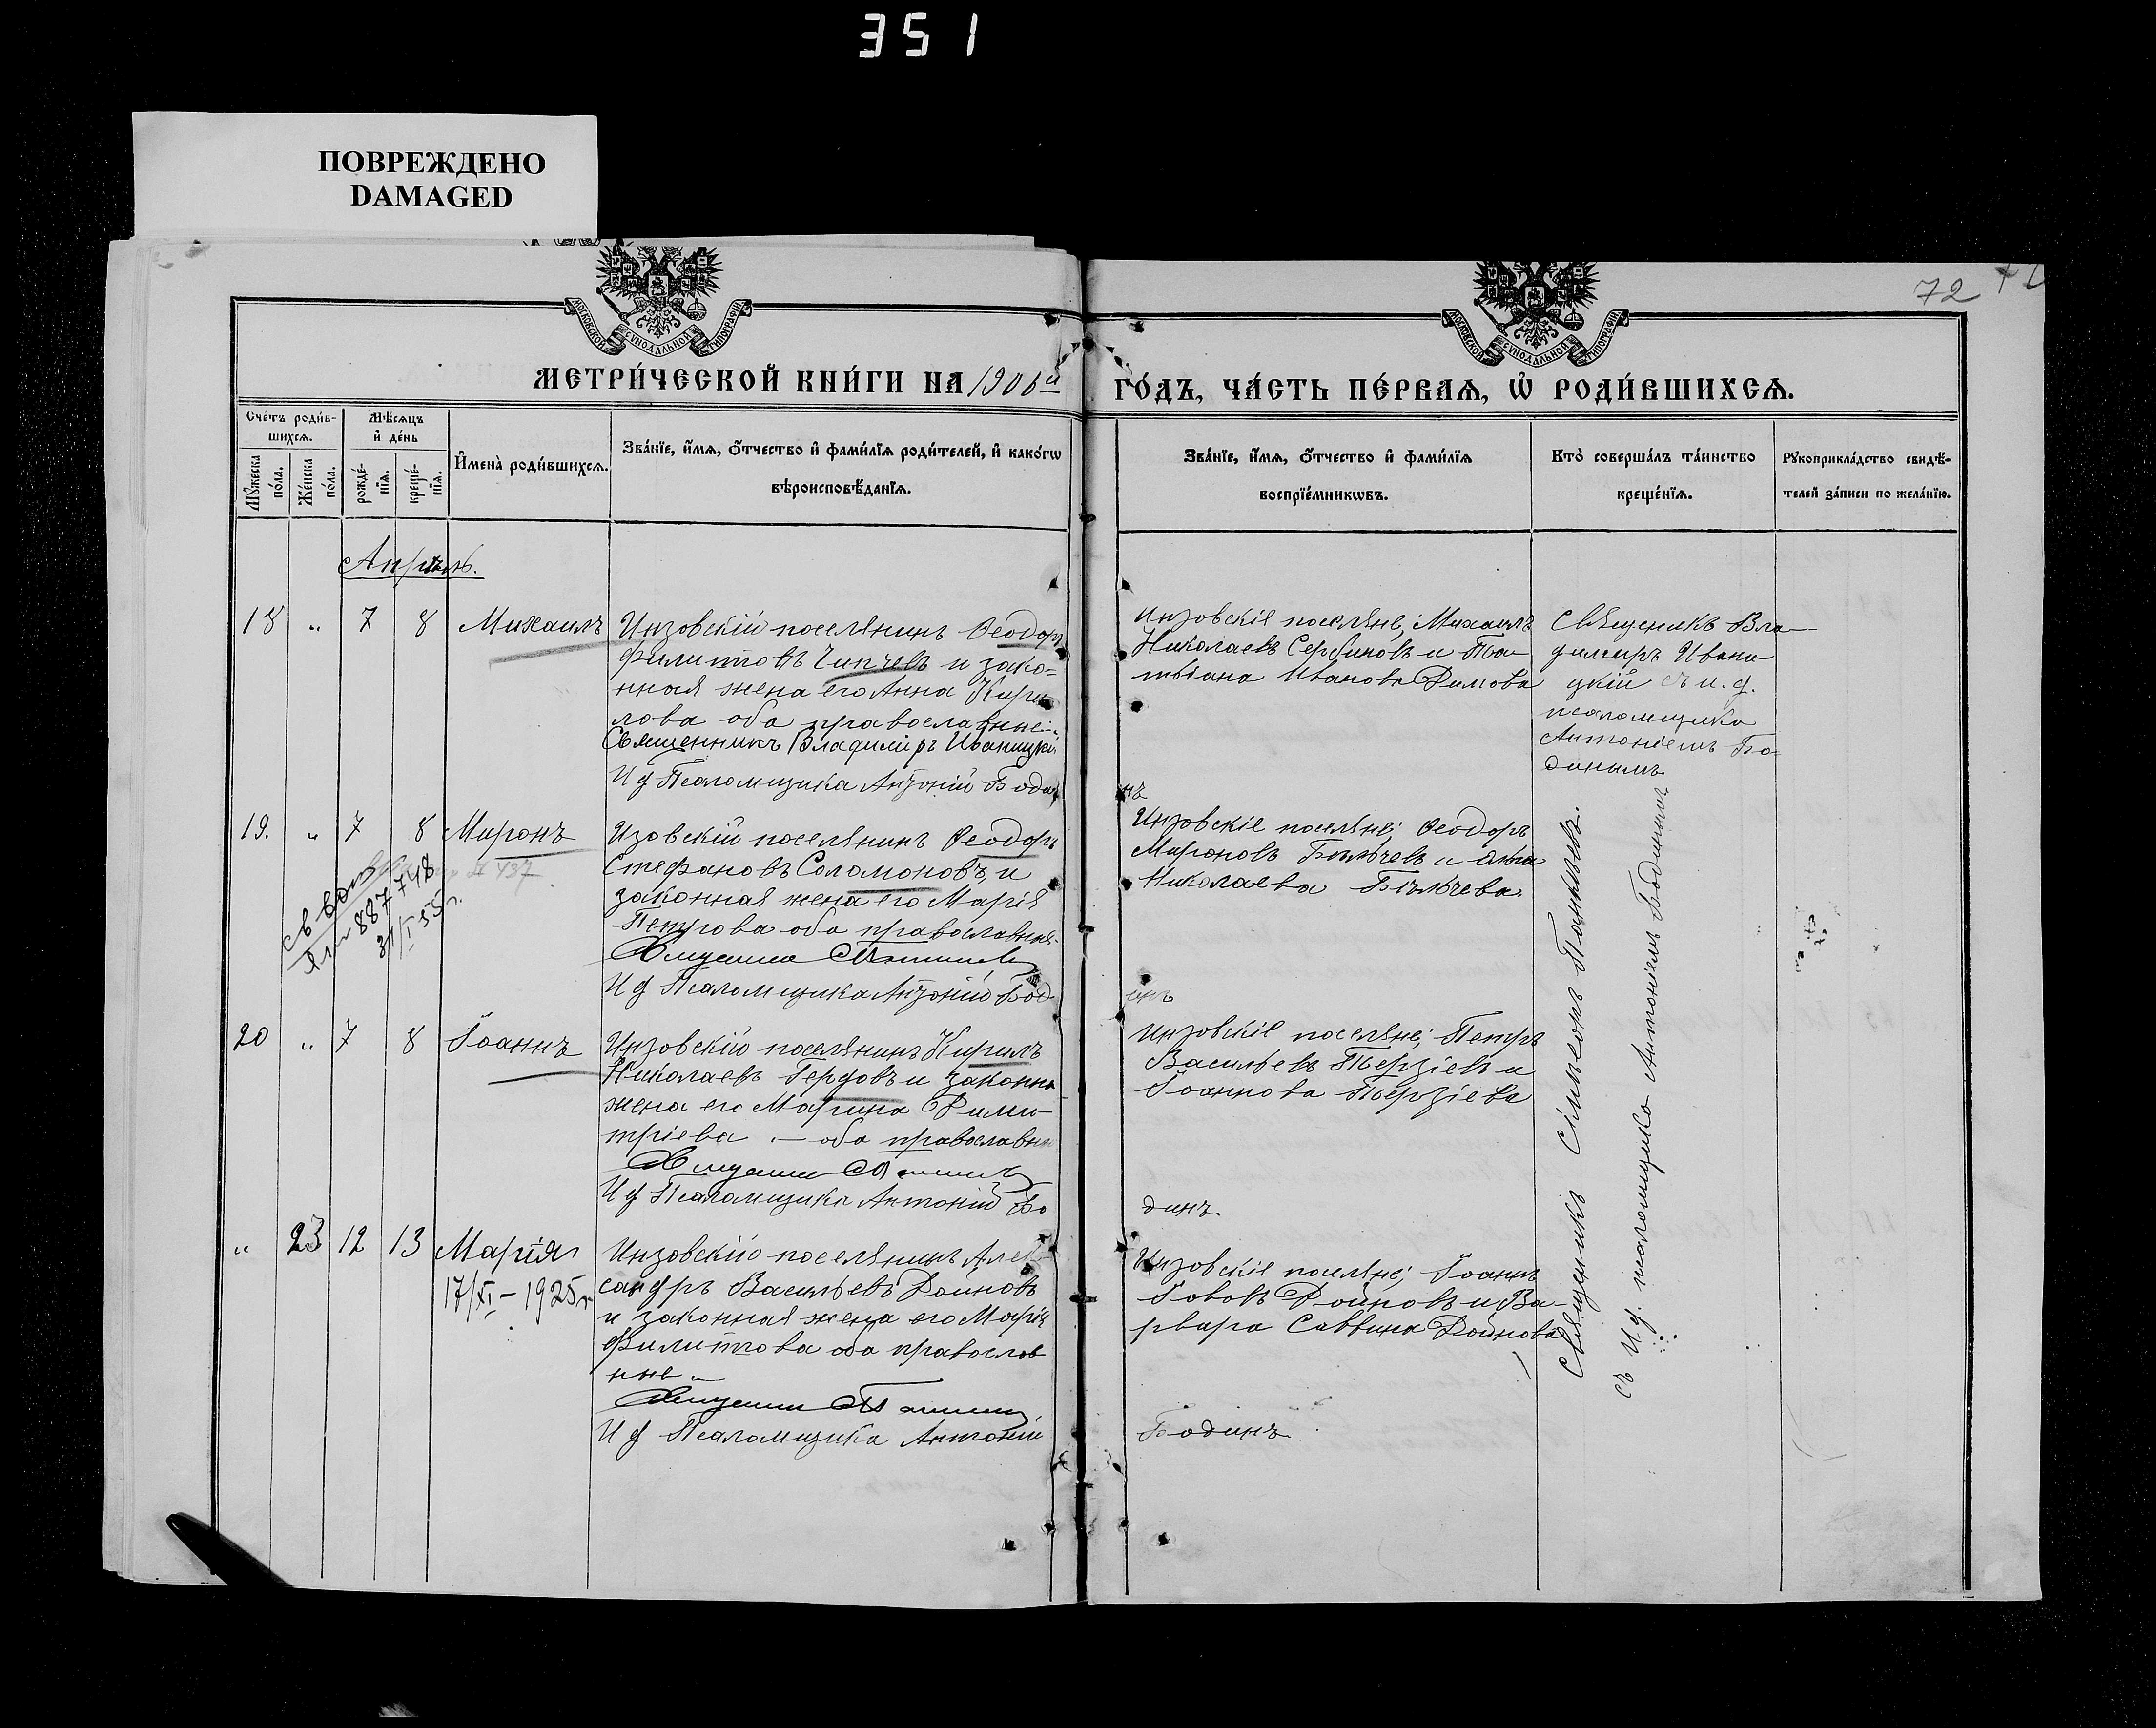 351
ПОВРЕЖДЕНО
DAMAGED
72
МОСКОВСКОЙ СУНОДАЛЬНОЙ ТИПОГРАФІИ
МОСКОВСКОЙ СУНОДАЛЬНОЙ ТИПОГРАФІИ
МЕТРИ́ЧЕСКОЙ КНИ́ГИ НА 1906й
ГО́ДЪ, ЧА́СТЬ ПЕ́РВАѦ, Ѡ҆ РОДИ́ВШИХСѦ.
Сче́тъ роди́в-
шихсѧ.
Мꙋ́жеска по́ла.
Же́нска по́ла.
Мѣ́сѧцъ
и҆ де́нь
рожде́-
нїѧ.
креще́-
нїѧ.
И҆мена̀ роди́вшихсѧ.
Зва́нїе, и҆́мѧ, ѻ҆́тчество и҆ фами́лїѧ роди́телей, и҆ како́гѡ
вѣроисповѣ́данїѧ.
Зва́нїе, и҆́мѧ, ѻ҆́тчество и҆ фами́лїѧ
воспрїе́мникѡвъ.
Кто̀ соверша́лъ та́инство
креще́нїѧ.
Рꙋкоприкла́дство свидѣ́-
телей за́писи по жела́нїю.
Апрѣль.
18 " 7 8 Михаилъ
Инзовскій поселянинъ Ѳеодоръ
Филиповъ Чипчевъ и зако=
нная жена его Анна Кири
лова оба православные
Священникъ Владиміръ Иваницкій
И д Псаломщика Антоній Бодинъ
Инзовскіе поселяне; Михаилъ
Николаевъ Сербиновъ и Та-
тьяна Иванова Димова
Священикъ Вла-
димиръ Ивани
цкій съ и. д.
псаломщика
Антоніемъ Бо-
динымъ
19. " 7 8 Миронъ
887748
31/I 55 г.
Изовскій поселянинъ Ѳеодоръ
Стефановъ Соломоновъ, и
законная жена его Марія
Петрова оба православные.
И д Псаломщика Антоній Бод
инъ
Инзовскіе поселяне; Ѳеодоръ
Мироновъ Бѣльчевъ и Анна
Николаева Бѣльчева.
20 " 7 8 Іоаннъ
Инзовскій поселянинъ Кирилъ
Николаевъ Гердовъ и законна
жена его Марина Дими-
тріева .— оба православны
И д Псаломщика Антоній Бо
динъ.
Инзовскіе поселяне; Петръ
Васильевъ Терзіевъ и
Іоаннова Терзіева
" 23 12 13 Марія
17/XI – 1925 г
Инзовскій поселянинъ Алек
сандръ Васильевъ Дойновъ
и законная жена его Марія
Филипова оба православ
ные
И д Псаломщика Антоній
Бодинъ
Инзовскіе поселяне; Іоаннъ
Іововъ Дойновъ и Ва-
рвара Саввина Дойнова
Священикъ Сімьеонъ
съ И д. псаломщика Антоніемъ Бодинымъ